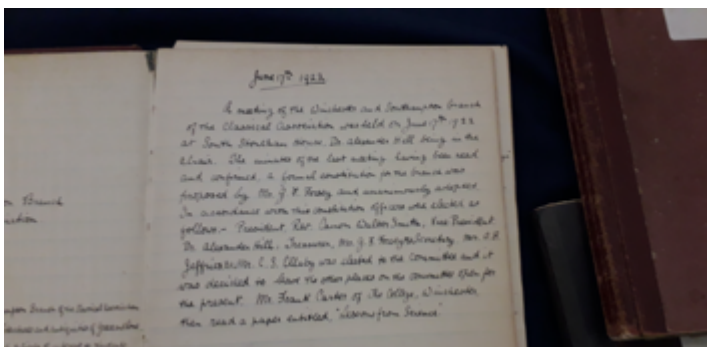 June 17th 1922
A meeting of the Winchester and Southampton Branch
of the Classical Association was held on June 17th 1922
at South Stoneham House, Dr. Alexander Hill being in the
Chair. The minutes of the last meeting having been read
and confirmed, a formal constitution for the branch was
proposed by Mr. J. F. and unanimously adopted.
In accordance with this constitution officers were elected as
follows:- President Rev. Canon Walter Smith, Vice President
Dr. Alexander Hill, Treasurer, Mr. J. F. Secretary, Mr. A. A.
Mr. C. S. Ellaby was elected to the Committee and it
was decided to leave the other places on the committee open for
the present. Mr. Frank Carter of The College, Winchester,
then read a paper entitled, "Lessons from Science"
Branch
Branch of the Classical Association
and antiquities of